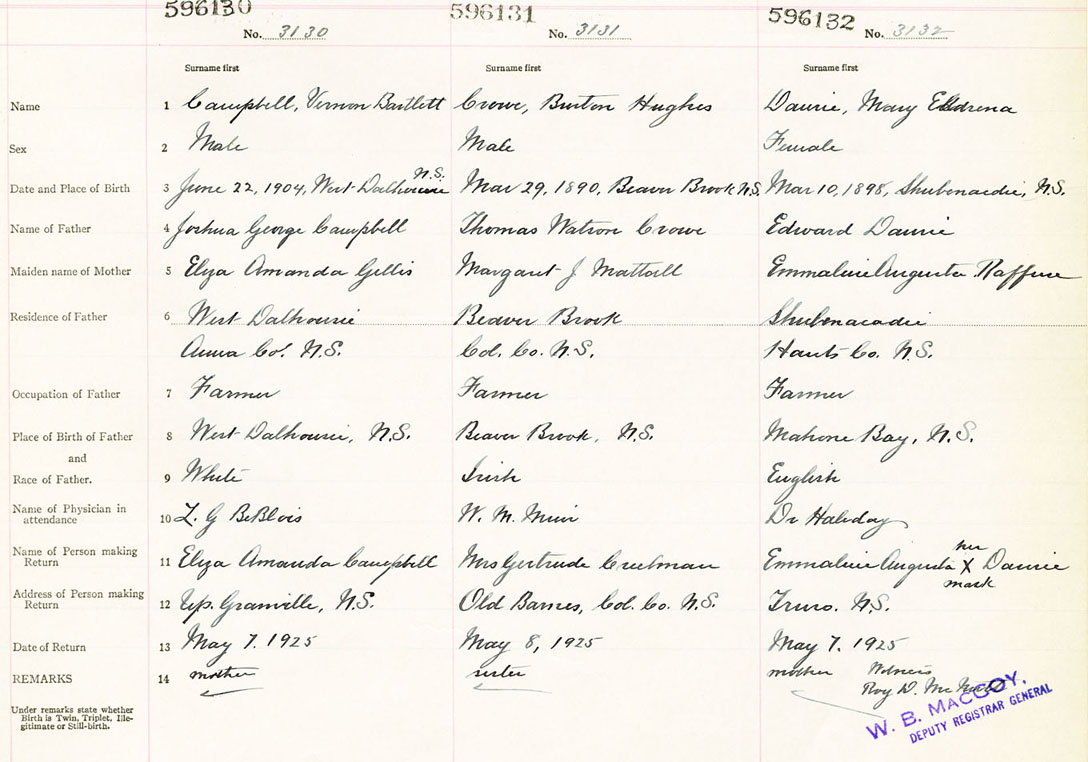 596130 596131 596132
No. 3130 No. 3131 No. 3132
Surname first Surname first Surname first
Name 1 Campbell, Vernon Bartlett Crowe, Burton Hughes Daurie, Mary Eldrena
Sex 2 Male Male Female
N.S.
Date and Place of Birth 3 June 22, 1904, West Dalhousie Mar 29, 1890, Beaver Brook N.S. Mar 10, 1898, Shubenacadie, N.S.
Name of Father 4 Joshua George Campbell Thomas Watson Crowe Edward Daurie
Maiden name of Mother 5 Elyza Amanda Gillis Margaret J Emmaline Augusta
Residence of Father 6 West Dalhousie Beaver Brook Shubenacadie
Anna Co. N.S. Col. Co. N.S. Hants Co. N.S.
Occupation of Father 7 Farmer Farmer Farmer
Place of Birth of Father 8 West Dalhousie, N.S. Beaver Brook, N.S. Mahone Bay, N.S.
and
Race of Father. 9 White Irish English
Name of Physician in
attendance 10 L. G DeBlois W. M. Muir Dr Haliday
her
Name of Person making
Return 11 Eliza Amanda Campbell Mrs Gertrude Creelman Emmaline Augusta X Daurie
mark
Address of Person making
Return 12 Up. Granville, N.S. Old Barnes, Col. Co. N.S. Truro. N.S.
Date of Return 13 May 7. 1925 May 8, 1925 May 7. 1925
REMARKS 14 mother sister mother Witness
Roy D.
Under remarks state whether
Birth is Twin, Triplet, Ille-
gitimate or Still-birth.
W. B. MACCOY,
DEPUTY REGISTRAR GENERAL